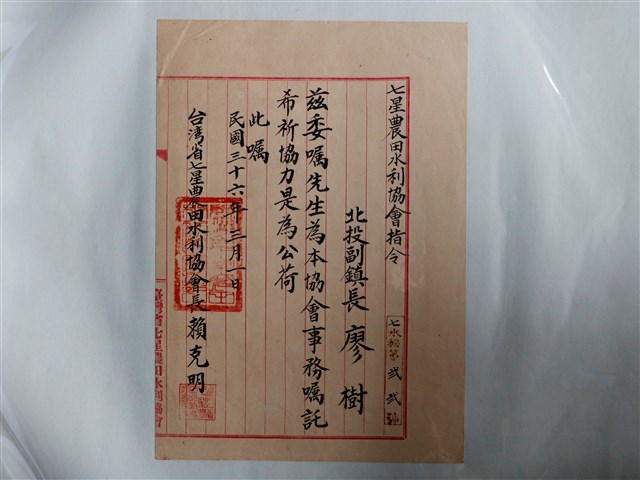 七星農田水利協會指令
七水秘第 弍弍 號
北投副鎮長 廖樹
茲委嘱先生為本協會事務嘱託
希祈協力是為公荷
此嘱
民國三十六年三月一日
台湾省七星農田水利協會長賴克明
臺灣省七星農田水利協會